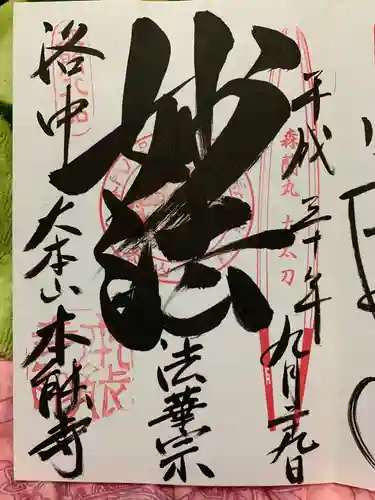 平成三十年九月二十九日
森蘭丸 大太刀
妙法
法華宗
洛中
大本山
本能寺